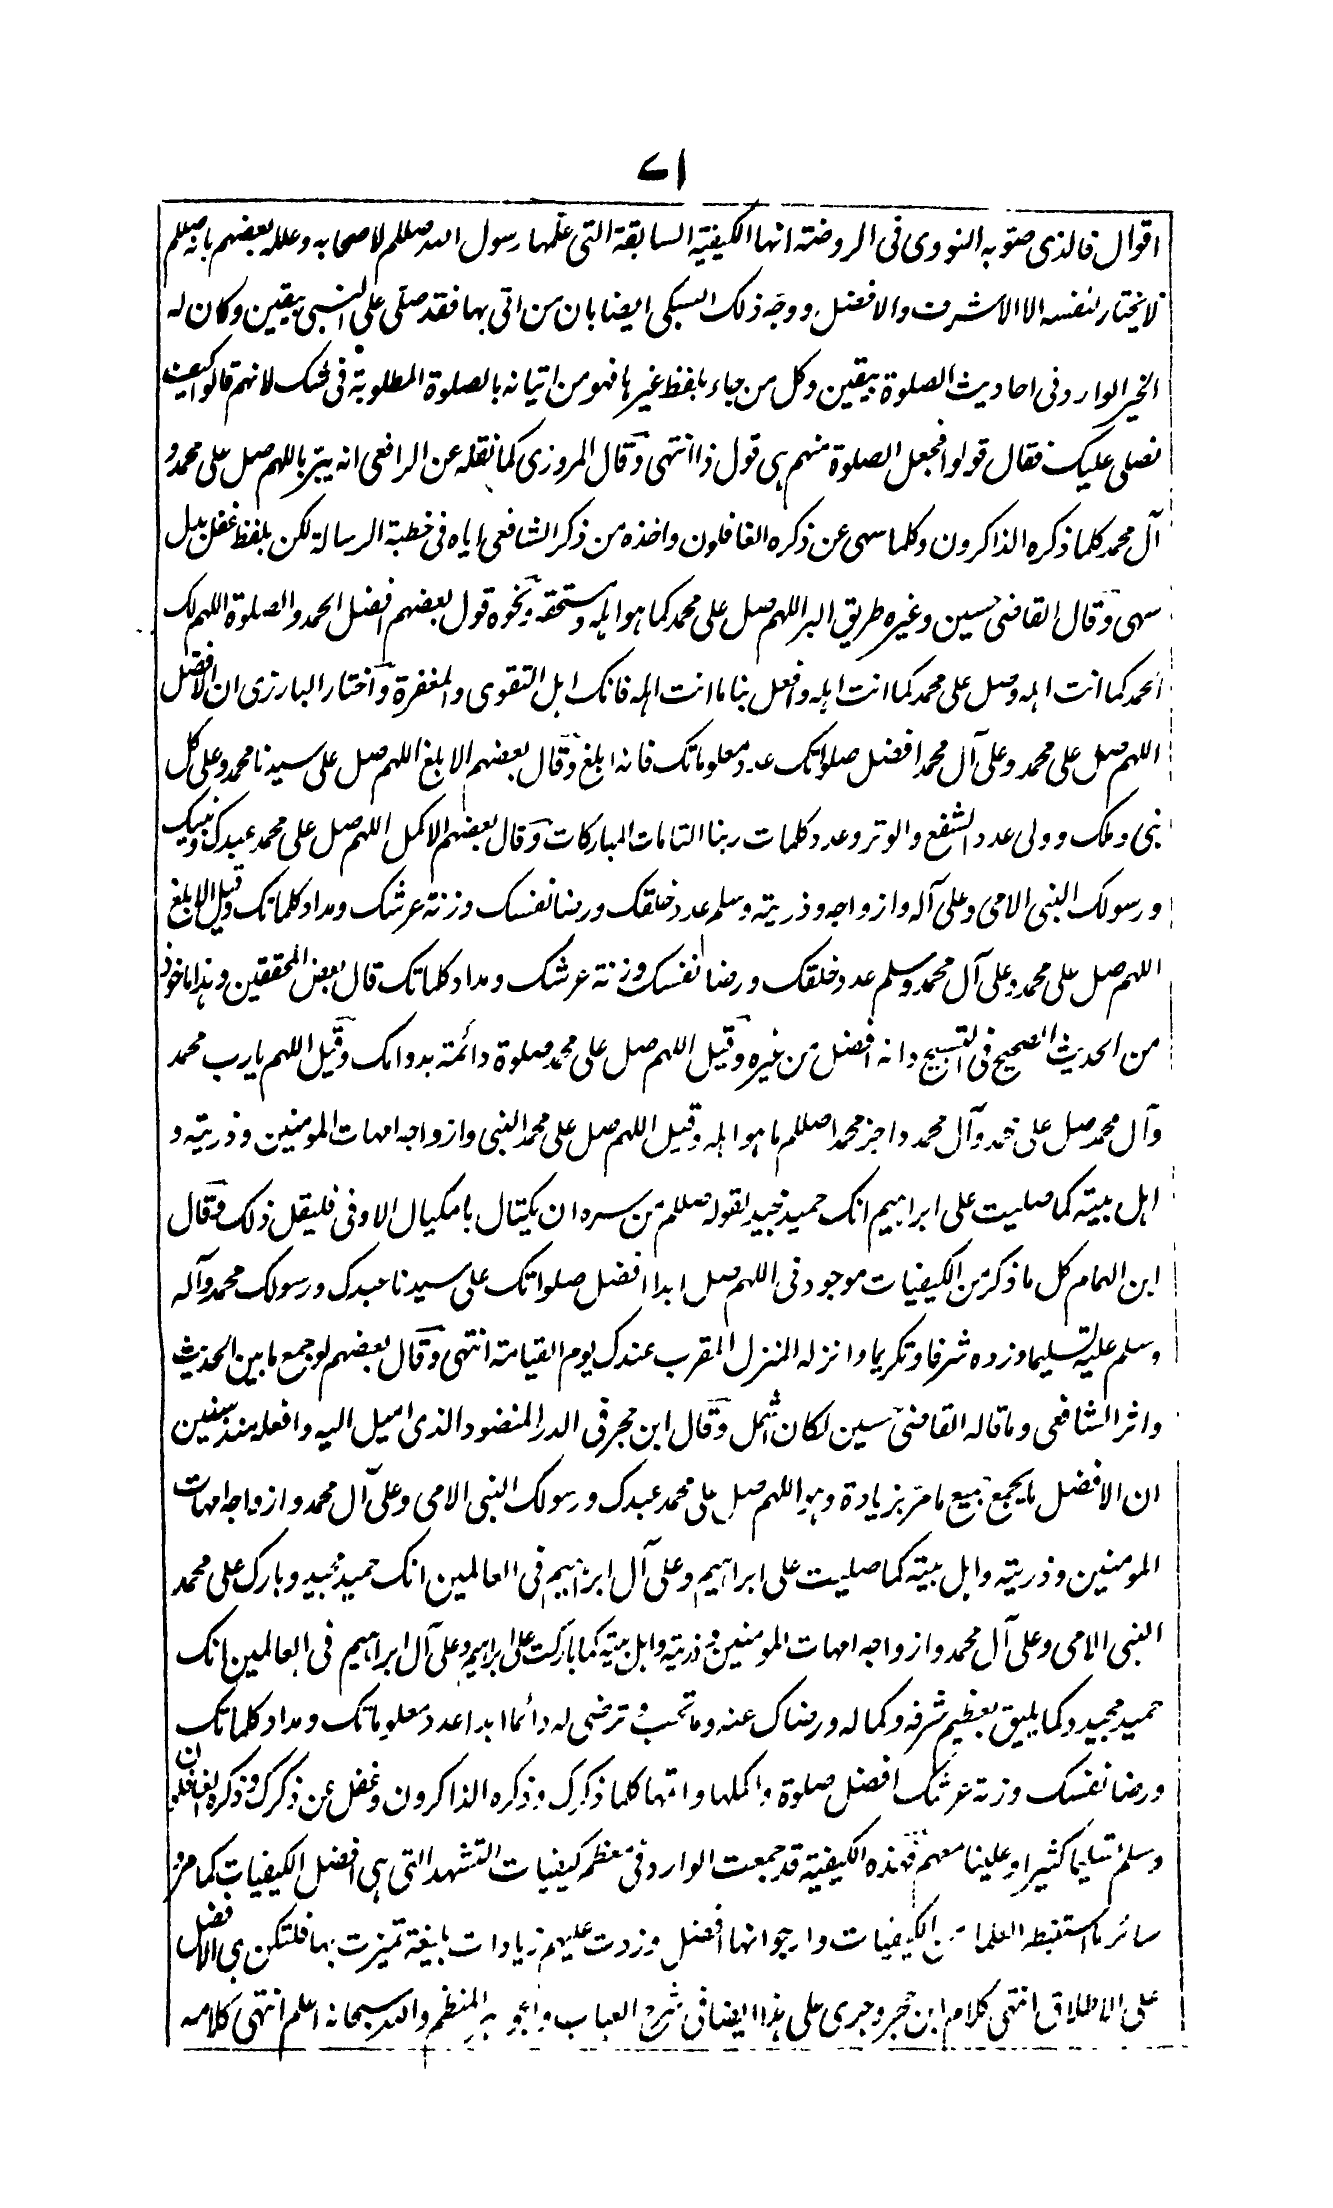 ۷۱
اقوال فالذى صوّبه النووى فى الروضته انها الكيفية السابقة التى علّمها رسول الله صللم لاصحابه وعلله بعضهم بانه صللم
لا يختار لنفسه الا الاشرف والافضل ووجّه ذلك السبكى ايضا بان من اتى بها فقد صلّى على النبى بيقين وكان له
الخير الوارد فى احاديث الصلوة بيقين وكل من جاء بلفظ غيرها فهو من اتيانه بالصلوة المطلوبة فى شك لانهم قالوا كيف
نصلى عليك فقال قولوا فجعل الصلوة منهم هى قول ذا انتهى وقال المروزى كما نقله عن الرافعى انه يبر باللهم صل على محمد و
آل محمد كلما ذكره الذاكرون وكلما سهى عن ذكره الغافلون واخذه من ذكر الشافعى اياه فى خطبة الرسالة لكن بلفظ غفل بدل
سهى وقال القاضى حسين وغيره طريق البر اللهم صل على محمد كما هو اهله ومستحقه ونحوه قول بعضهم افضل الحمد والصلوة اللهم لك
الحمد كما انت اهله وصل على محمد كما انت اهله وافعل بنا ما انت اهله فانك اهل التقوى والمغفرة واختار البارزى ان الافضل
اللهم صل على محمد وعلى آل محمد افضل صلواتك عدد معلوماتك فانه ابلغ وقال بعضهم الابلغ اللهم صل على سيدنا محمد وعلى كل
نبى وملك وولى عدد الشفع والوتر وعدد كلمات ربنا التامات المباركات وقال بعضهم الاكمل اللهم صل على محمد عبدك ونبيك
ورسولك النبى الامى وعلى آله وازواجه وذريته وسلم عدد خلقك ورضا نفسك وزنة عرشك ومداد كلماتك وقيل الابلغ
اللهم صل على محمد وعلى آل محمد وسلم عدد خلقك ورضا نفسك وزنة عرشك ومداد كلماتك قال بعض المحققين وهذا ماخوذ
من الحديث الصحيح فى التسبيح وانه افضل من غيره وقيل اللهم صل على محمد صلوة دائمة بدوامك وقيل اللهم يا رب محمد
وآل محمد صل على محمد وآل محمد واجز محمدا صللم ما هو اهله وقيل اللهم صل على محمد النبى وازواجه امهات المومنين وذريته و
اهل بيته كما صليت على ابراهيم انك حميد مجيد لقوله صللم من سره ان يكتال بالمكيال الاوفى فليقل ذلك وقال
ابن الهمام كل ما ذكر من الكيفيات موجود فى اللهم صل ابدا افضل صلواتك على سيدنا عبدك ورسولك محمد وآله
وسلم عليه تسليما وزده شرفا وتكريما وانزله المنزل المقرب عندك يوم القيامة انتهى وقال بعضهم لو جمع ما بين الحديث
واثر الشافعى وما قاله القاضى حسين لكان اشمل وقال ابن حجر فى الدر المنضود الذى اميل اليه وافعله منذ سنين
ان الافضل ما يجمع جميع ما مرّ بزيادة وهو اللهم صل على محمد عبدك ورسولك النبى الامى وعلى آل محمد وازواجه امهات
المومنين وذريته واهل بيته كما صليت على ابراهيم وعلى آل ابراهيم فى العالمين انك حميد مجيد وبارك على محمد
النبى الامى وعلى آل محمد وازواجه امهات المومنين وذريته واهل بيته كما باركت على ابراهيم وعلى آل ابراهيم فى العالمين انك
حميد مجيد وكما يليق بعظيم شرفه وكماله ورضاك عنه وما تحب وترضى له دائما ابدا عدد معلوماتك ومداد كلماتك
ورضا نفسك وزنة عرشك افضل صلوة واكملها واتمها كلما ذكرك وذكره الذاكرون وغفل عن ذكرك وذكره الغافلون
وسلم تسليما كثيرا وعلينا معهم فهذه الكيفية قد جمعت الوارد فى معظم كيفيات التشهد التى هى افضل الكيفيات كما مر و
سائر ما استنبطه العلما من الكيفيات وارجو انها افضل وزدت عليهم زيادات بليغة تميزت بها فلتكن هى الافضل
على الاطلاق انتهى كلام ابن حجر وجرى على هذا ايضا فى شرح العباب والجوهر المنظم والله سبحانه اعلم انتهى كلامه